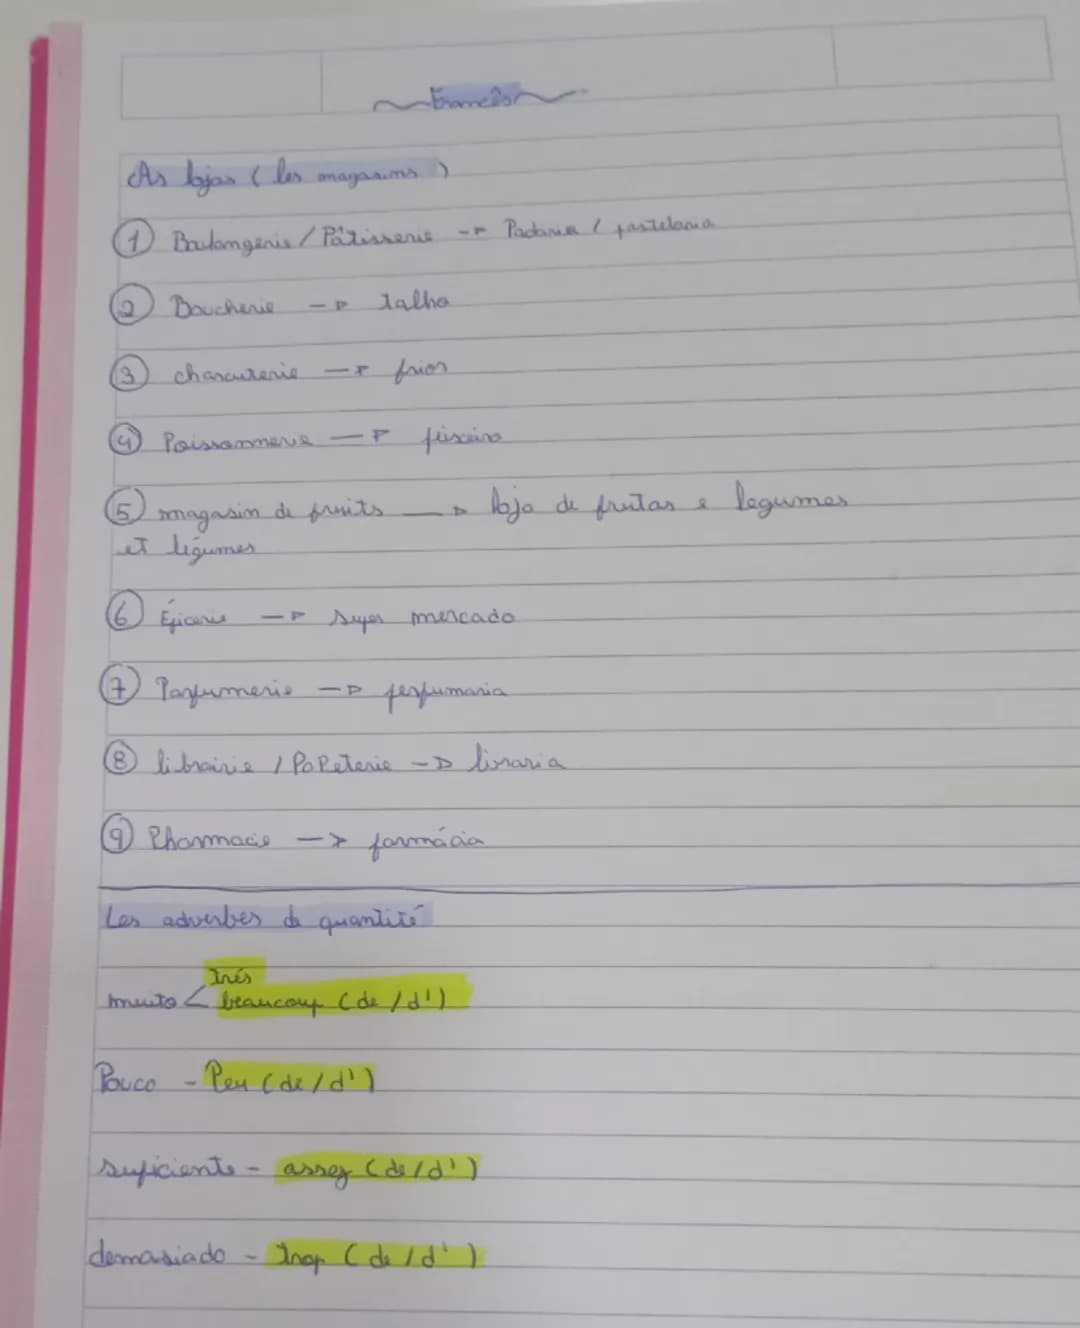 Francês
As lojas ( les magasins )
1 Boulangerie / Pâtisserie -> Padaria / pastelaria
2 Boucherie -> talho
3 charcuterie -> frios
4 Poissonnerie -> peixeiro
5 magasin de fruits -> loja de frutas e legumes
et légumes
6 Épicerie -> super mercado
7 Parfumerie -> perfumaria
8 librairie / PaPeterie -> livraria
9 Pharmacie -> farmácia
Les adverbes de quantité
Trés
muito < beaucoup ( de / d' )
Pouco - Peu ( de / d' )
suficiente - assez ( de / d' )
demasiado - trop ( de / d' )